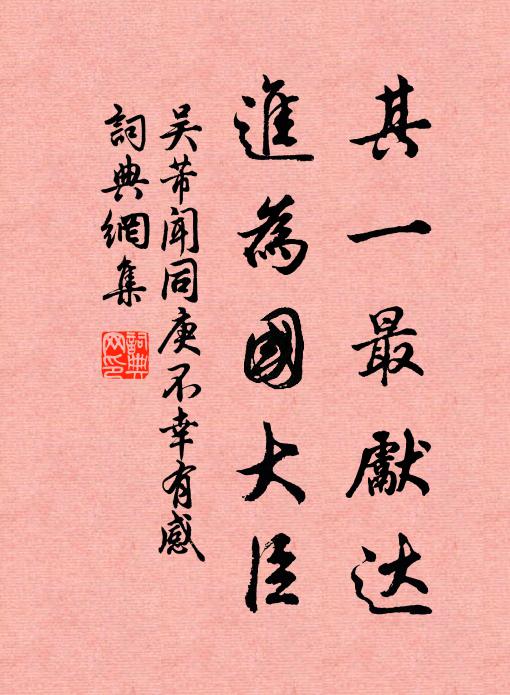 其一最獻达
進為國大臣
吴芾聞同庚不幸有感
詞典網集
詞典
网印